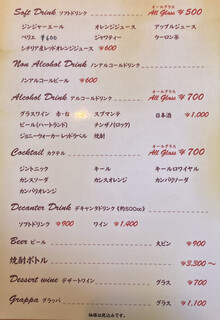 Soft Drink ソフトドリンク オールグラス All Glass ¥500
ジンジャーエール オレンジジュース アップルジュース
ペリエ ¥600 ジャワティー ウーロン茶
シチリア産レッドオレンジジュース ¥600
Non Alcohol Drink ノンアルコールドリンク
ノンアルコールビール ¥600
Alcohol Drink アルコールドリンク オールグラス All Glass ¥700
グラスワイン 赤・白 スプマンテ 日本酒 ¥1,000
ビール(ハートランド) チンザノ(ロック)
ジョニーウォーカー レッドラベル 焼酎
Cocktail カクテル オールグラス All Glass ¥700
ジントニック キール キールロワイヤル
カシスソーダ カシスオレンジ カンパリソーダ
カンパリオレンジ
Decanter Drink デキャンタドリンク (約500cc)
ソフトドリンク ¥900 ワイン ¥1,400
Beer ビール 大ビン ¥900
焼酎ボトル ¥3,300〜
Dessert wine デザートワイン グラス ¥700
Grappa グラッパ グラス ¥1,100
価格は税込みです。